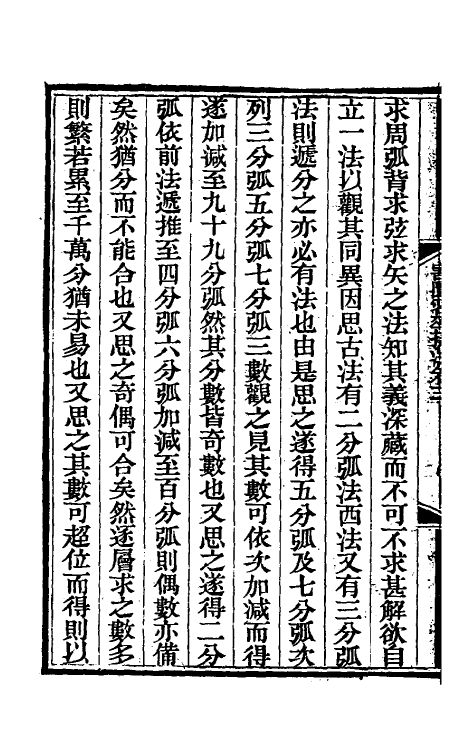 求周弧背求弦求矢之法知其義深藏而不可不求甚解欲自
立一法以觀其同異因思古法有二分弧法西法又有三分弧
法則遞分之亦必有法也由是思之遂得五分弧及七分弧次
列三分弧五分弧七分弧三數觀之見其數可依次加減而得
遂加減至九十九分弧然其分數皆奇數也又思之遂得二分
弧依前法遞推至四分弧六分弧加減至百分弧則偶數亦備
矣然猶分而不能合也又思之奇偶可合矣然逐層求之數多
則繁若累至千萬分猶未易也又思之其數可超位而得則以